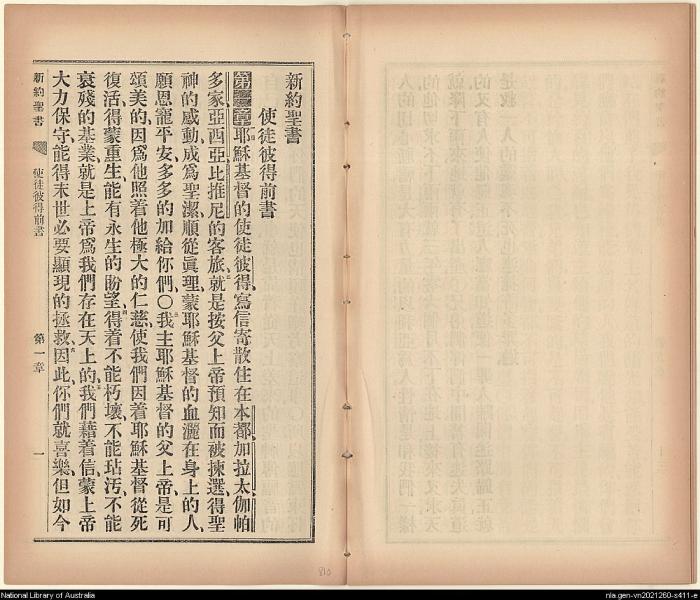 新約聖書
使徒彼得前書
第一章耶穌基督的使徒彼得、寫信寄散住在本都、加拉太、伽帕
多家、亞西亞、比推尼的客旅、就是按父上帝預知而被揀選、得聖
神的感動、成爲聖潔、順從眞理、蒙耶穌基督的血灑在身上的人、
願恩寵平安、多多的加給你們、〇我主耶穌基督的父上帝、是可
頌美的、因爲他照着他極大的仁慈、使我們因着耶穌基督從死
復活、得蒙重生、能有永生的盼望、得着不能朽壞、不能玷汚、不能
衰殘的基業、就是上帝爲我們存在天上的、我們藉着信、蒙上帝
大力保守、能得末世必要顯現的拯救、因此你們就喜樂、但如今
新約聖書 使徒彼得前書 第一章 一
National Library of Australia
nla.gen-vn2021260-s411-e